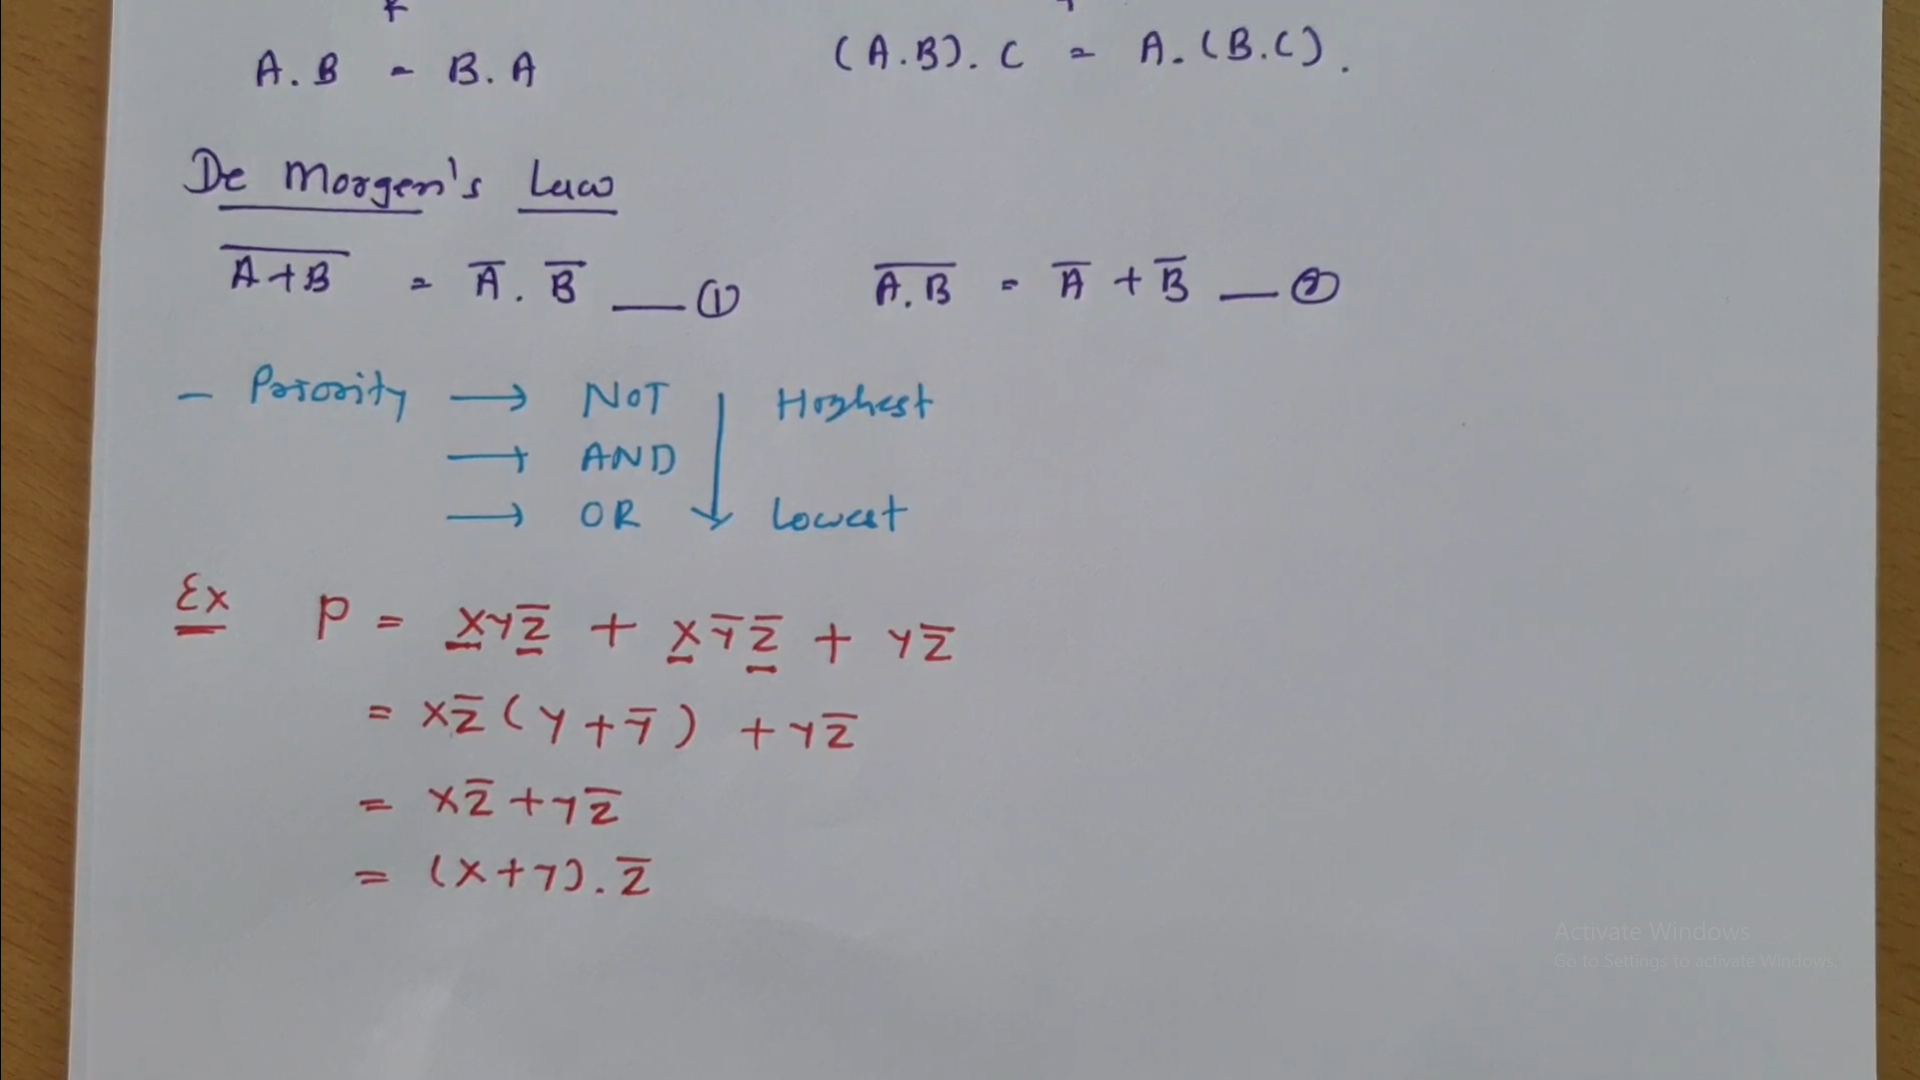 A.B = B.A
(A.B).C = A.(B.C).
De Morgen's Law
A̅+̅B̅ = A̅.B̅ — ①
A̅.̅B̅ = A̅ + B̅ — ②
- Priority → NOT Highest
→ AND
→ OR ↓ Lowest
Ex P = XYZ̅ + XY̅Z̅ + YZ̅
= XZ̅(Y+Y̅) + YZ̅
= XZ̅+YZ̅
= (X+Y).Z̅
Activate Windows
Go to Settings to activate Windows.